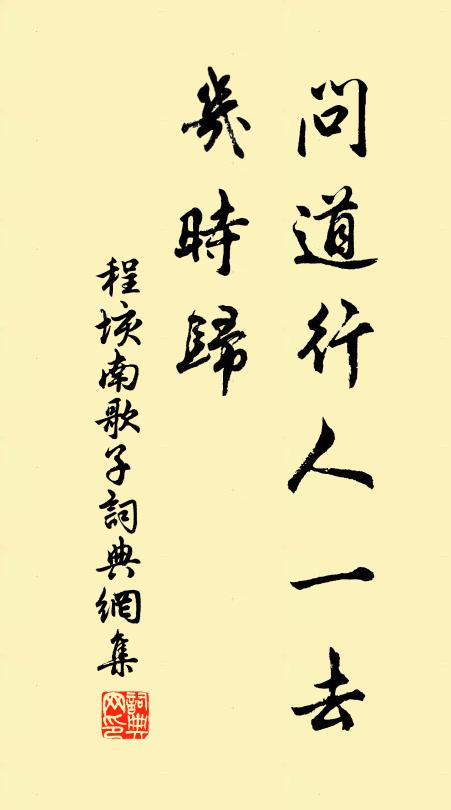 問道行人一去
幾時歸
程垓南歌子詞典網集
詞典網印